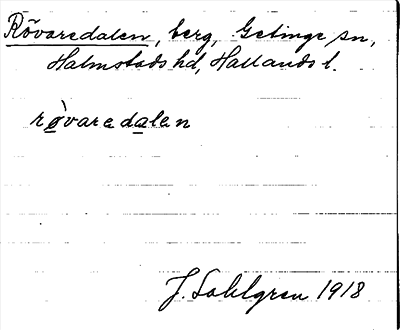 Rövaredalen, berg, Getinge sn,
Halmstads hd, Hallands l.
rø̀varedalen
J. Sahlgren 1918